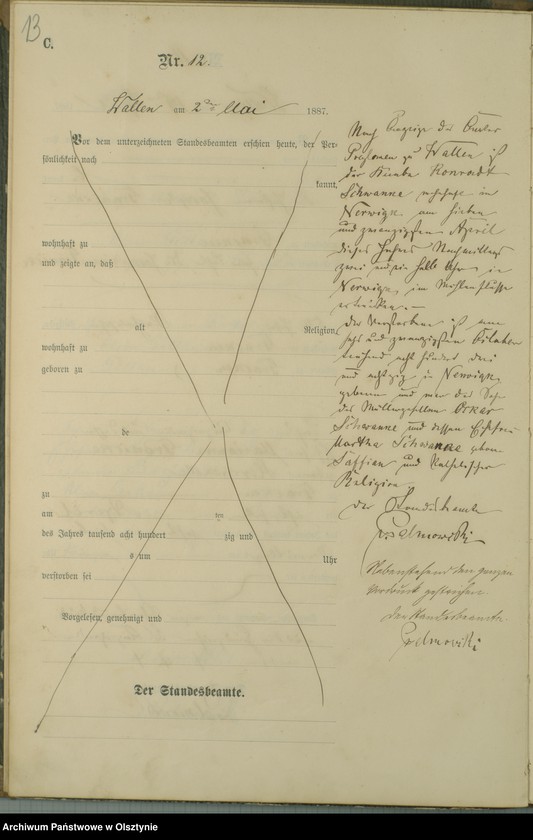 13
C.
Nr. 12.
Wallen am 2ten Mai 1887.
Vor dem unterzeichneten Standesbeamten erschien heute, der Per-
sönlichkeit nach
kannt,
wohnhaft zu
und zeigte an, daß
alt Religion,
wohnhaft zu
geboren zu
de
zu
am ten
des Jahres tausend acht hundert zig und
s um Uhr
verstorben sei
Vorgelesen, genehmigt und
Der Standesbeamte.
Nach Anzeige des
zu Wallen ist
der Knabe Konradt
Schwanne wohnhaft in
Nerwigk am sieben
und zwanzigsten April
dieses Jahres Nachmittags
zwei und ein halb Uhr in
Nerwigk, im Mühlenflusse
ertrunken.
Der Verstorbene ist am
sechs und zwanzigsten Oktober
tausend acht hundert drei
und achtzig in Nerwigk
geboren und war der Sohn
des Müllergesellen Oskar
Schwanne und dessen Ehefrau
Martha Schwanne geborene
und Katholischer
Religion.
Der Standesbeamte
Nebenstehend den ganzen
Vordruck gestrichen.
Der Standesbeamte.
Archiwum Państwowe w Olsztynie